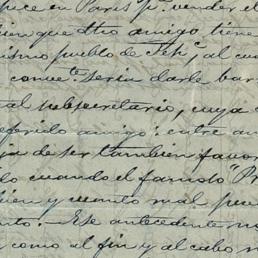 en Paris pª vender el
bien que dho amigo tiene
mismo pueblo de Feh.º, al cu
convte seria darle bar
al subsecretario, cuya
referido amigo: entre an
de ser tambien favor
do cuando el famoso "Pr
bien y cuento mal pue
ento: Ese antecedente no
y como al fin y al cabo